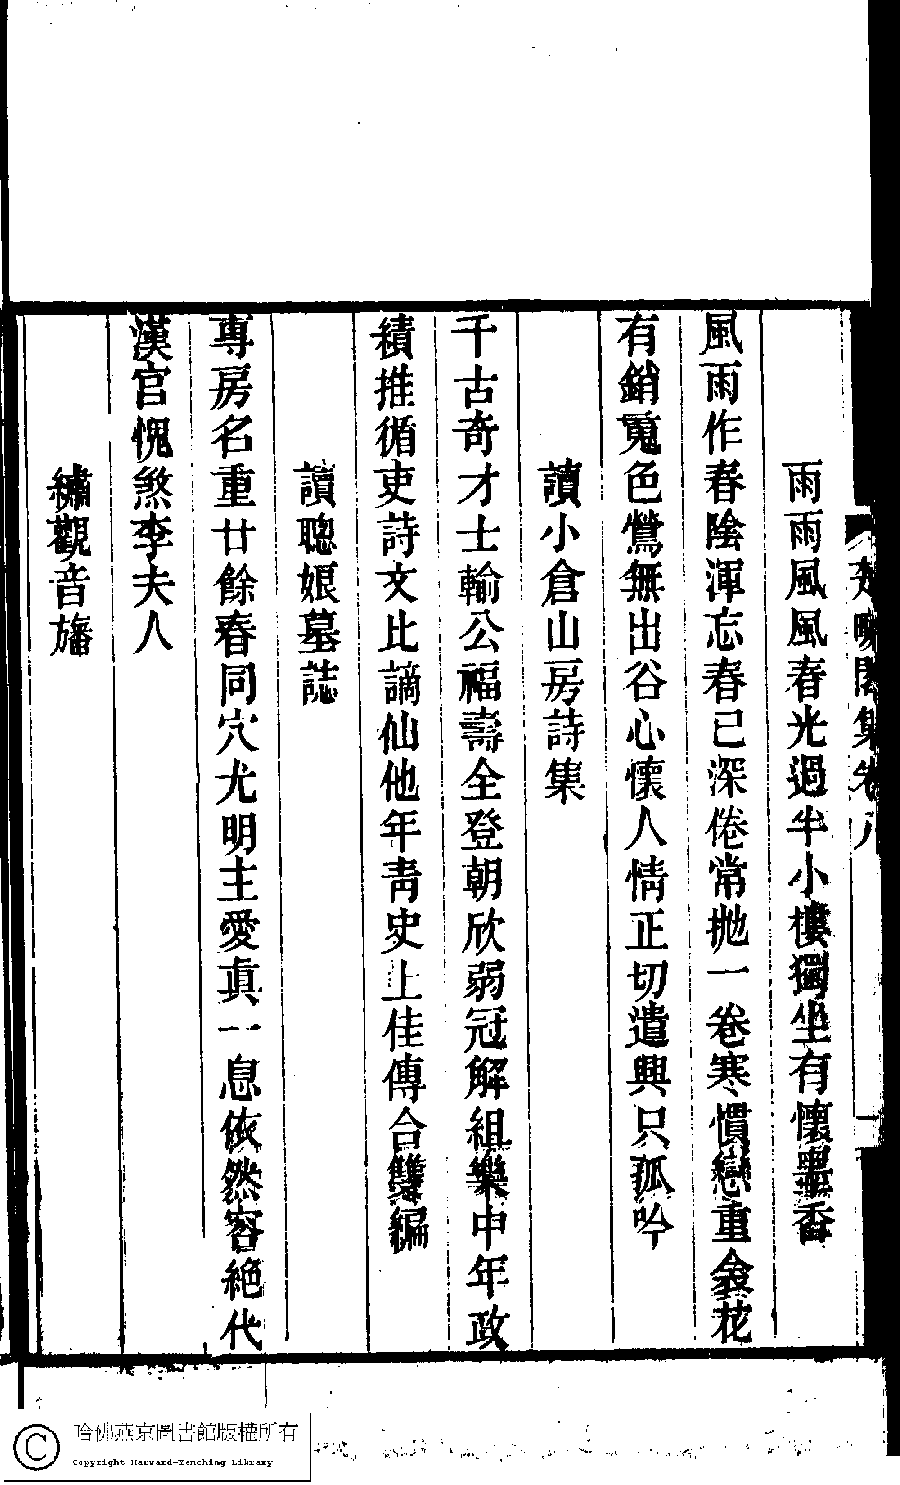 雨雨風風春光過半小樓獨坐有懷墨香
風雨作春陰渾忘春已深倦常拋一卷寒慣戀重衾花
有銷魂色鶯無出谷心懷人情正切遣興只孤吟
讀小倉山房詩集
千古奇才士輸公福壽全登朝欣弱冠解組樂中年政
績推循吏詩文比謫仙他年靑史上佳傳合雙編
讀聰娘墓誌
專房名重廿餘春同穴尤明主愛眞一息依然容絕代
漢宮愧煞李夫人
繡觀音旛
哈佛燕京圖書館版權所有
Copyright Harvard-Yenching Library